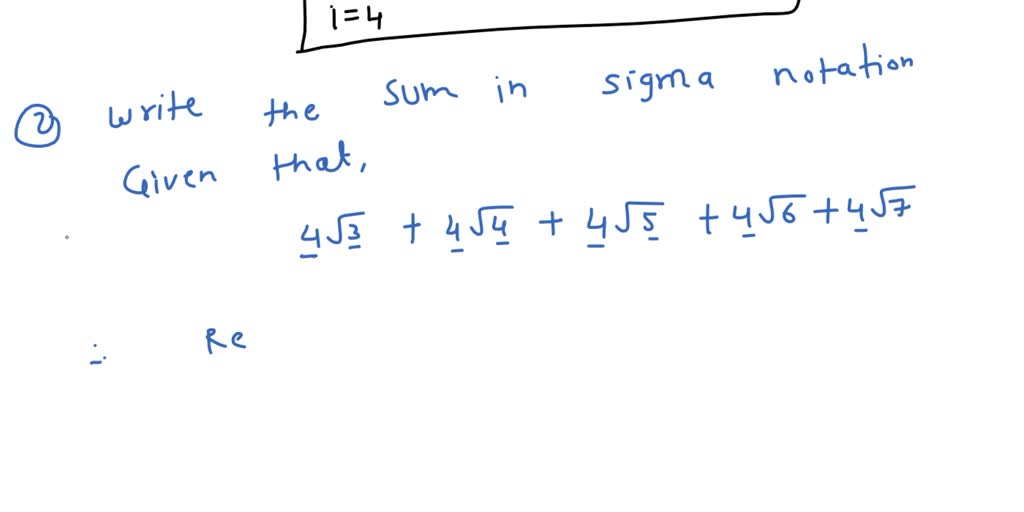 i=4
② write the sum in sigma notation
Given that,
4√3 + 4√4 + 4√5 + 4√6 + 4√7
∴ Re